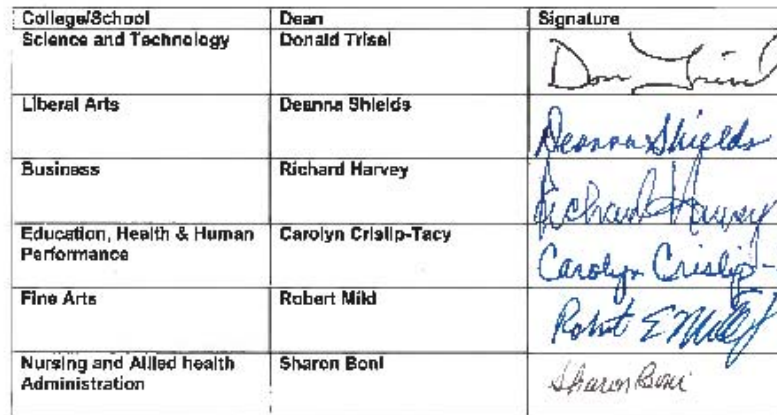 College/School Dean Signature
Science and Technology Donald Trisel Don Trisel
Liberal Arts Deanna Shields Deanna Shields
Business Richard Harvey Richard Harvey
Education, Health & Human Performance Carolyn Crislip-Tacy Carolyn Crislip-
Fine Arts Robert Mild Robert E
Nursing and Allied health Administration Sharon Boni Sharon Boni